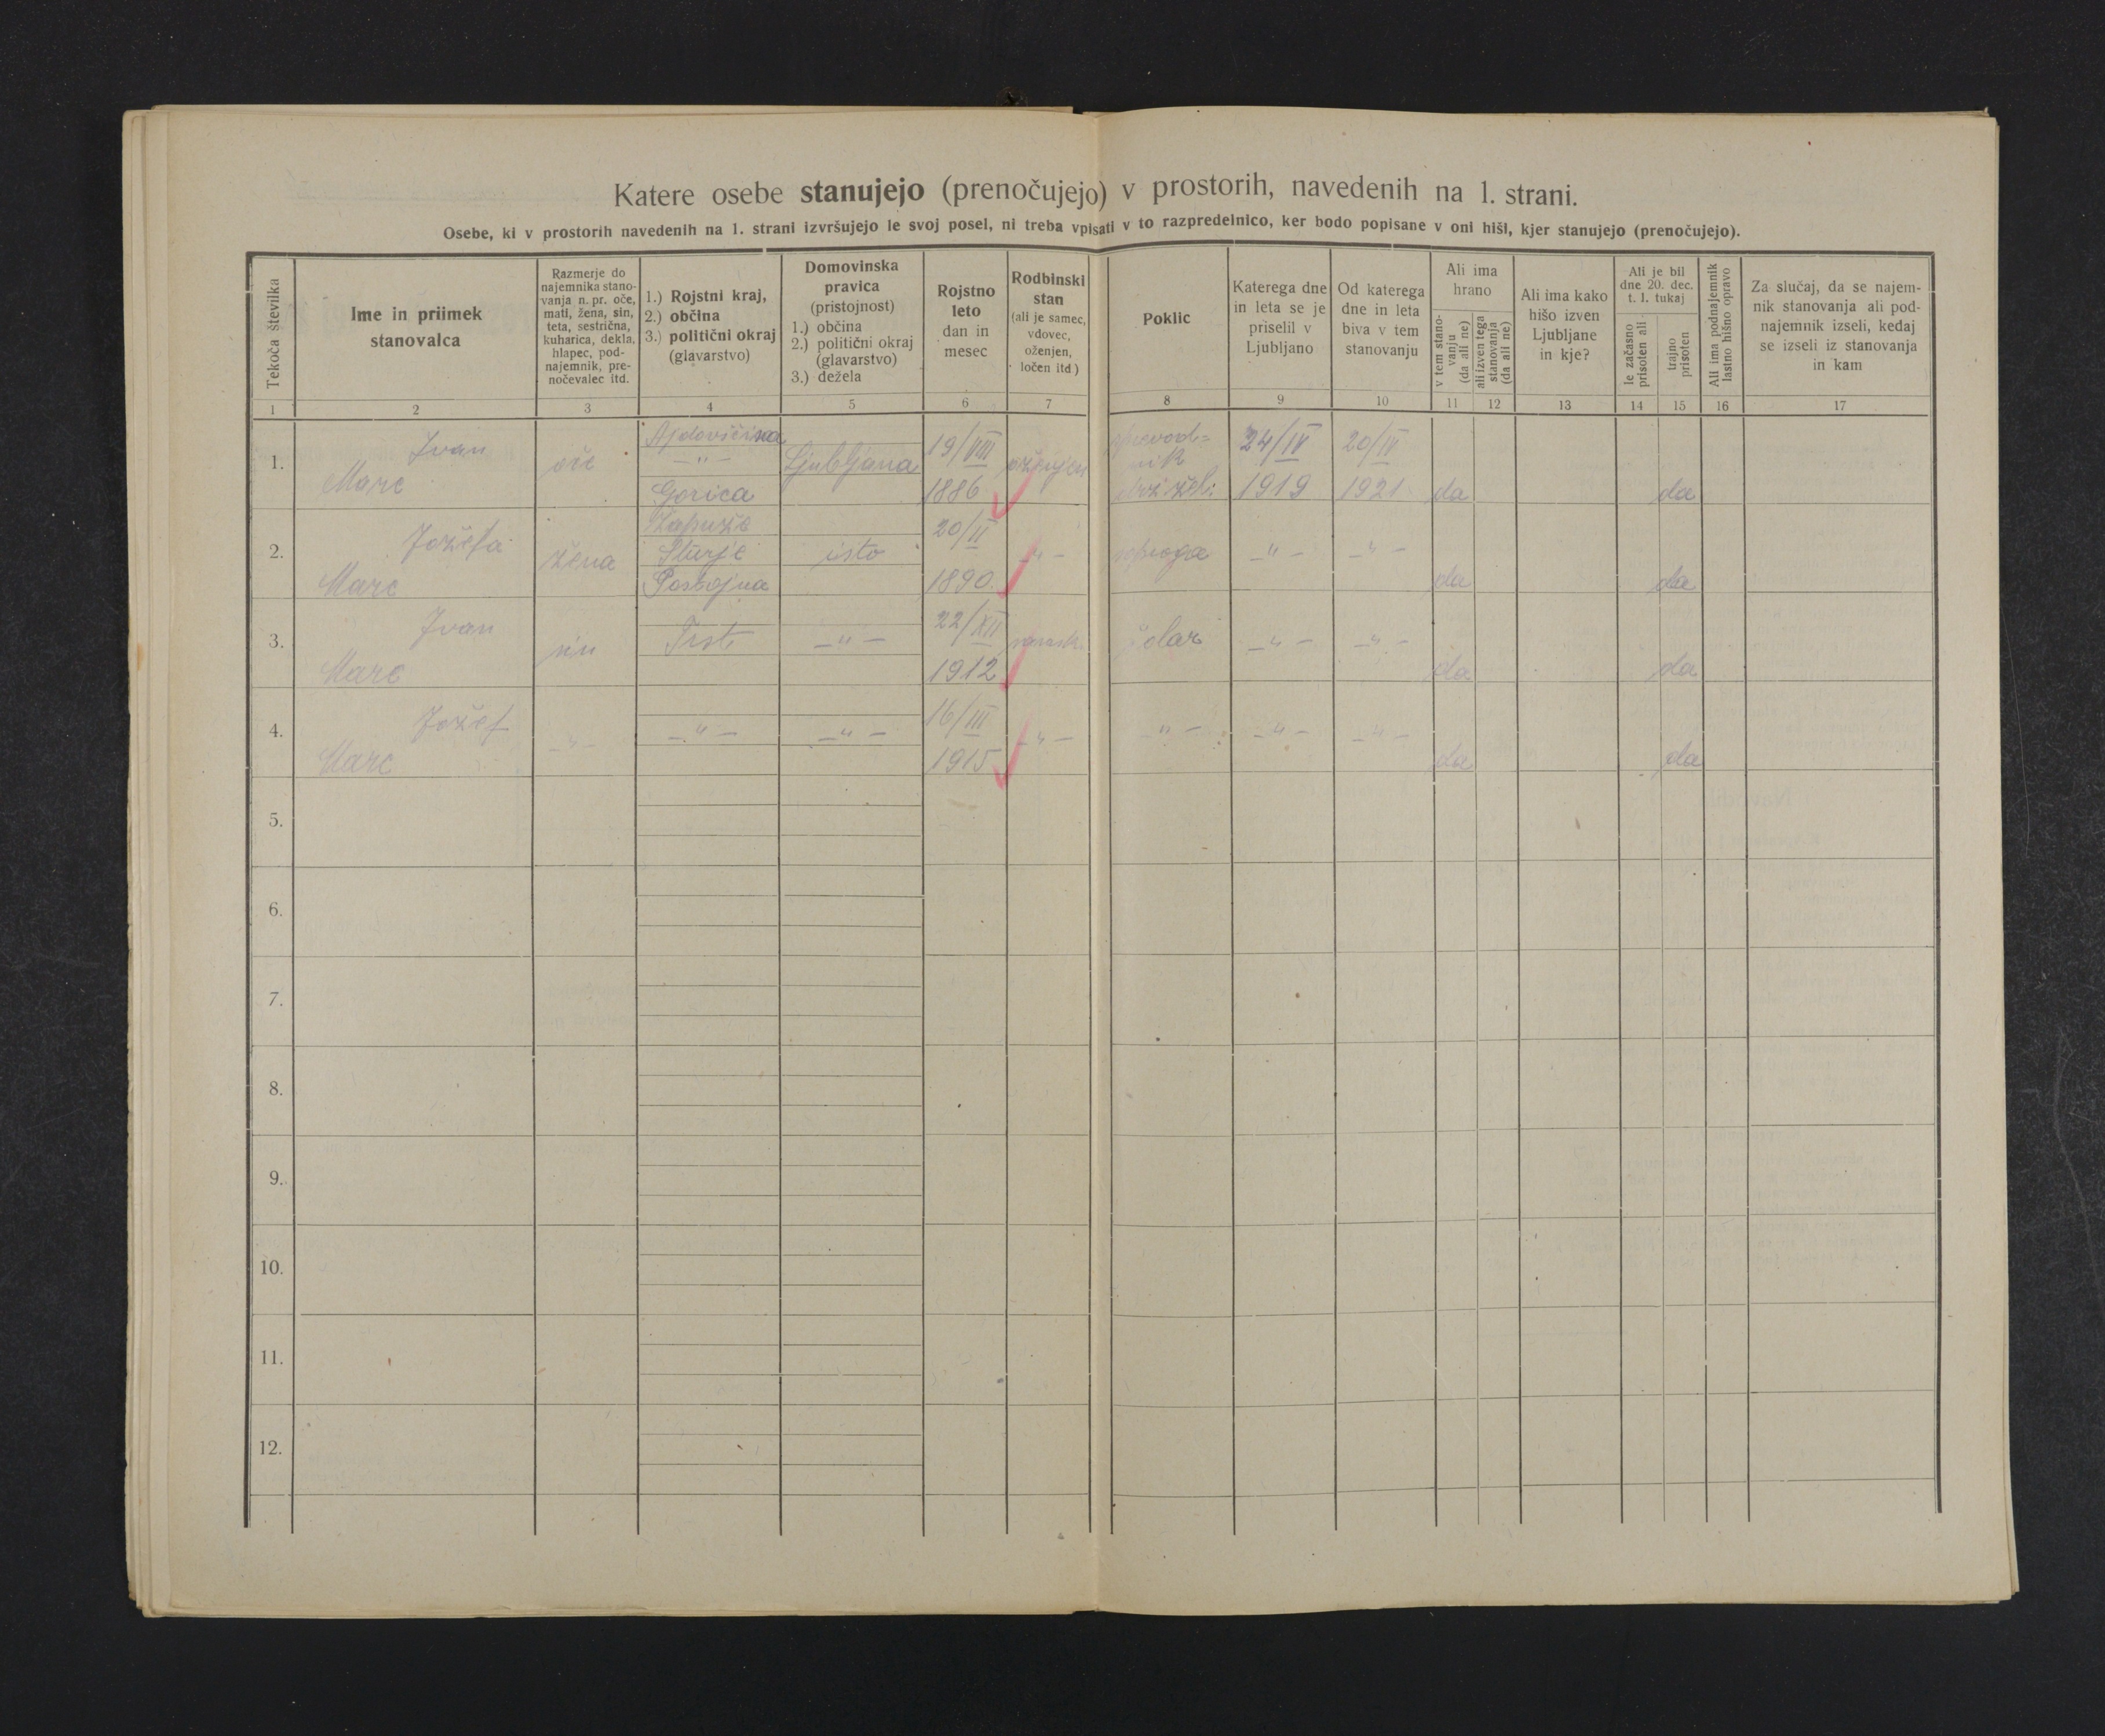 Katere osebe stanujejo (prenočujejo) v prostorih, navedenih na 1. strani.
Osebe, ki v prostorih navedenih na 1. strani izvršujejo le svoj posel, ni treba vpisati v to razpredelnico, ker bodo popisane v oni hiši, kjer stanujejo (prenočujejo).
Tekoča številka
Ime in priimek
stanovalca
Razmerje do
najemnika stano-
vanja n. pr. oče,
mati, žena, sin,
teta, sestrična,
kuharica, dekla,
hlapec, pod-
najemnik, pre-
nočevalec itd.
1.) Rojstni kraj,
2.) občina
3.) politični okraj
(glavarstvo)
Domovinska
pravica
(pristojnost)
1.) občina
2.) politični okraj
(glavarstvo)
3.) dežela
Rojstno
leto
dan in
mesec
Rodbinski
stan
(ali je samec,
vdovec,
oženjen,
ločen itd)
Poklic
Katerega dne
in leta se je
priselil v
Ljubljano
Od katerega
dne in leta
biva v tem
stanovanju
Ali ima
hrano
v tem stano-
vanju
(da ali ne)
ali izven tega
stanovanja
(da ali ne)
Ali ima kako
hišo izven
Ljubljane
in kje?
Ali je bil
dne 20. dec.
t. l. tukaj
le začasno
prisoten ali
trajno
prisoten
Ali ima podnajemnik
lastno hišno opravo
Za slučaj, da se najem-
nik stanovanja ali pod-
najemnik izseli, kedaj
se izseli iz stanovanja
in kam
1 2 3 4 5 6 7 8 9 10 11 12 13 14 15 16 17
1.
Ivan
Marc
oče
Ajdovščina
-"-
Gorica
Ljubljana
19/VIII
1886
oženjen
sprevod=
nik
drž. žel.
24/IV
1919
20/IV
1921
da
da
2.
Jožefa
Marc
žena
Šturje
Postojna
isto
20/II
1890.
-"-
soproga
-"-
-"-
da
da
3.
Ivan
Marc
sin
Trst
-"-
22/XII
1912
-"-
-"-
da
da
4.
Jožef
Marc
-"-
-"-
-"-
16/III
1915
-"-
-"-
-"-
-"-
da
da
5.
6.
7.
8.
9.
10.
11.
12.